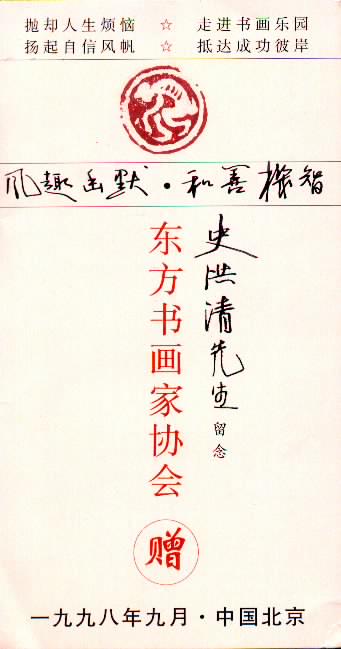 抛却人生烦恼 ☆ 走进书画乐园
扬起自信风帆 ☆ 抵达成功彼岸
风趣幽默·和善机智
史洪清先生留念
东方书画家协会
赠
一九九八年九月·中国北京